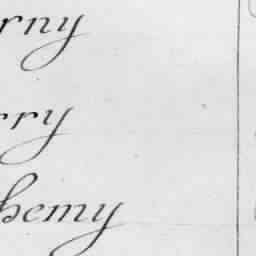 rny
rry
hemy